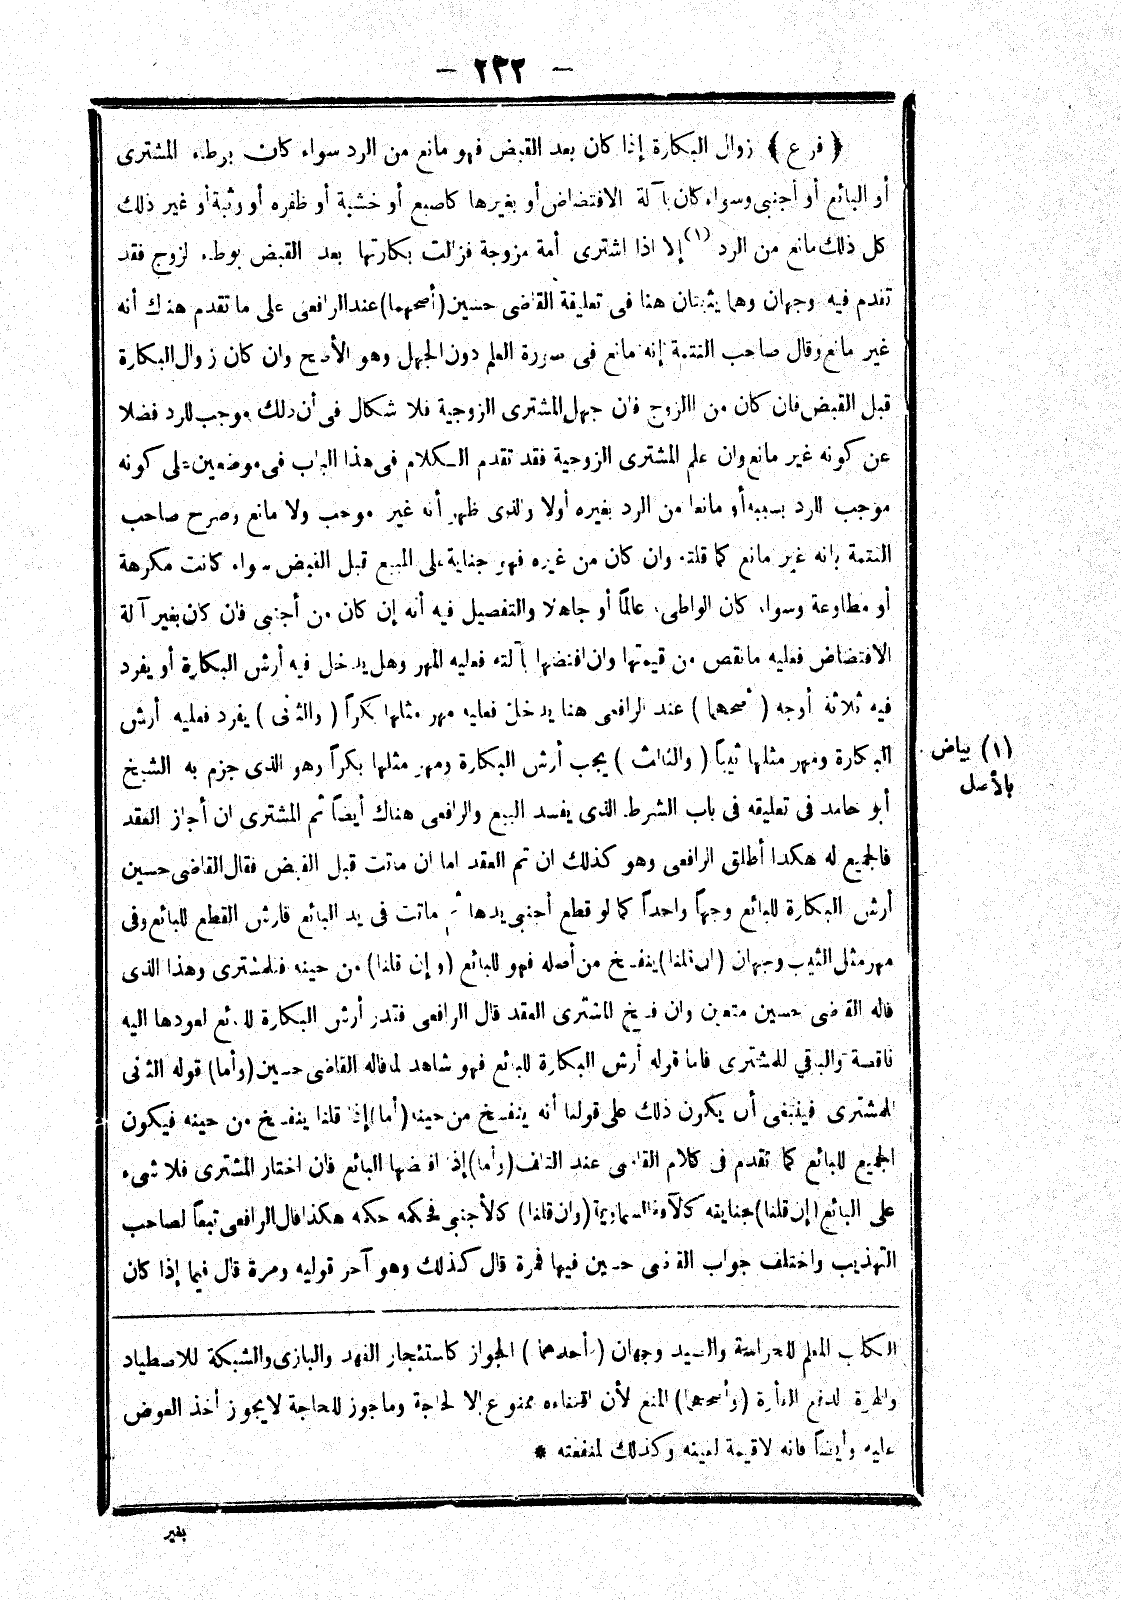 — ٢٣٢ —
﴿ فرع ﴾ زوال البكارة إذا كان بعد القبض فهو مانع من الرد سواء كان بوطء المشترى
أو البائع أو أجنبى وسواء كان بآلة الافتضاض أو بغيرها كاصبع أو خشبة أو ظفره أو وثبة أو غير ذلك
كل ذلك مانع من الرد (١) إلا اذا اشترى أمة مزوجة فزالت بكارتها بعد القبض بوطء لزوج فقد
تقدم فيه وجهان وهما يثبتان هنا فى تعليقة القاضى حسين (أصحهما) عند الرافعى على ما تقدم هناك أنه
غير مانع وقال صاحب التتمة إنه مانع فى صورة العلم دون الجهل وهو الأصح وان كان زوال البكارة
قبل القبض فان كان من الزوج فان جهل المشترى الزوجية فلا شكال فى أن ذلك موجب للرد فضلا
عن كونه غير مانع وان علم المشترى الزوجية فقد تقدم الكلام فى هذا الباب فى موضعين على كونه
موجب للرد بسببه أو مانعا من الرد بغيره أولا والذى ظهر أنه غير موجب ولا مانع وصرح صاحب
التتمة بانه غير مانع كما قلته وان كان من غيره فهو جناية على المبيع قبل القبض سواء كانت مكرهة
أو مطاوعة وسواء كان الواطىء عالماً أو جاهلا والتفصيل فيه أنه إن كان من أجنبى فان كان بغير آلة
الافتضاض فعليه ما نقص من قيمتها وان افتضها بآلته فعليه المهر وهل يدخل فيه أرش البكارة أو يفرد
فيه ثلاثة أوجه ( أصحهما ) عند الرافعى هنا يدخل فعليه مهر مثلها بكراً ( والثانى ) يفرد فعليه أرش
البكارة ومهر مثلها ثيباً ( والثالث ) يجب أرش البكارة ومهر مثلها بكراً وهو الذى جزم به الشيخ
أبو حامد فى تعليقه فى باب الشرط الذى يفسد البيع والرافعى هناك أيضاً ثم المشترى ان أجاز العقد
فالجميع له هكذا أطلق الرافعى وهو كذلك ان تم العقد اما ان ماتت قبل القبض فقال القاضى حسين
أرش البكارة للبائع وجهاً واحداً كما لو قطع أجنبى يدها ثم ماتت فى يد البائع فارش القطع للبائع وفى
مهر مثل الثيب وجهان (ان قلنا) ينفسخ من أصله فهو للبائع (وإن قلنا) من حينه فللمشترى وهذا الذى
قاله القاضى حسين متعين وان فسخ المشترى العقد قال الرافعى فقدر أرش البكارة للبائع لعودها اليه
ناقصة والباقي للمشترى فاما قوله أرش البكارة للبائع فهو شاهد لما قاله القاضى حسين (وأما) قوله الثانى
للمشترى فينبغى أن يكون ذلك على قولنا أنه ينفسخ من حينه (أما) إذا قلنا ينفسخ من حينه فيكون
الجميع للبائع كما تقدم فى كلام القاضى عند التلف (وأما) إذا افتضها البائع فان اختار المشترى فلا شىء
على البائع (إن قلنا) جنايته كالآفة السماوية (وان قلنا) كالأجنبى فحكمه حكمه هكذا قال الرافعى تبعاً لصاحب
التهذيب واختلف جواب القاضى حسين فيها فمرة قال كذلك وهو آخر قوليه ومرة قال فيما إذا كان
(١) بياض
بالأصل
الكلب المعلم للحراسة والصيد وجهان ( أحدهما ) الجواز كاستئجار الفهد والبازى والشبكة للاصطياد
والهرة لدفع الفأرة (وأصحهما) المنع لأن اقتناءه ممنوع إلا لحاجة وما جوز للحاجة لا يجوز أخذ العوض
عليه وأيضاً فانه لا قيمة لعينه وكذلك لمنفعته *
بغير